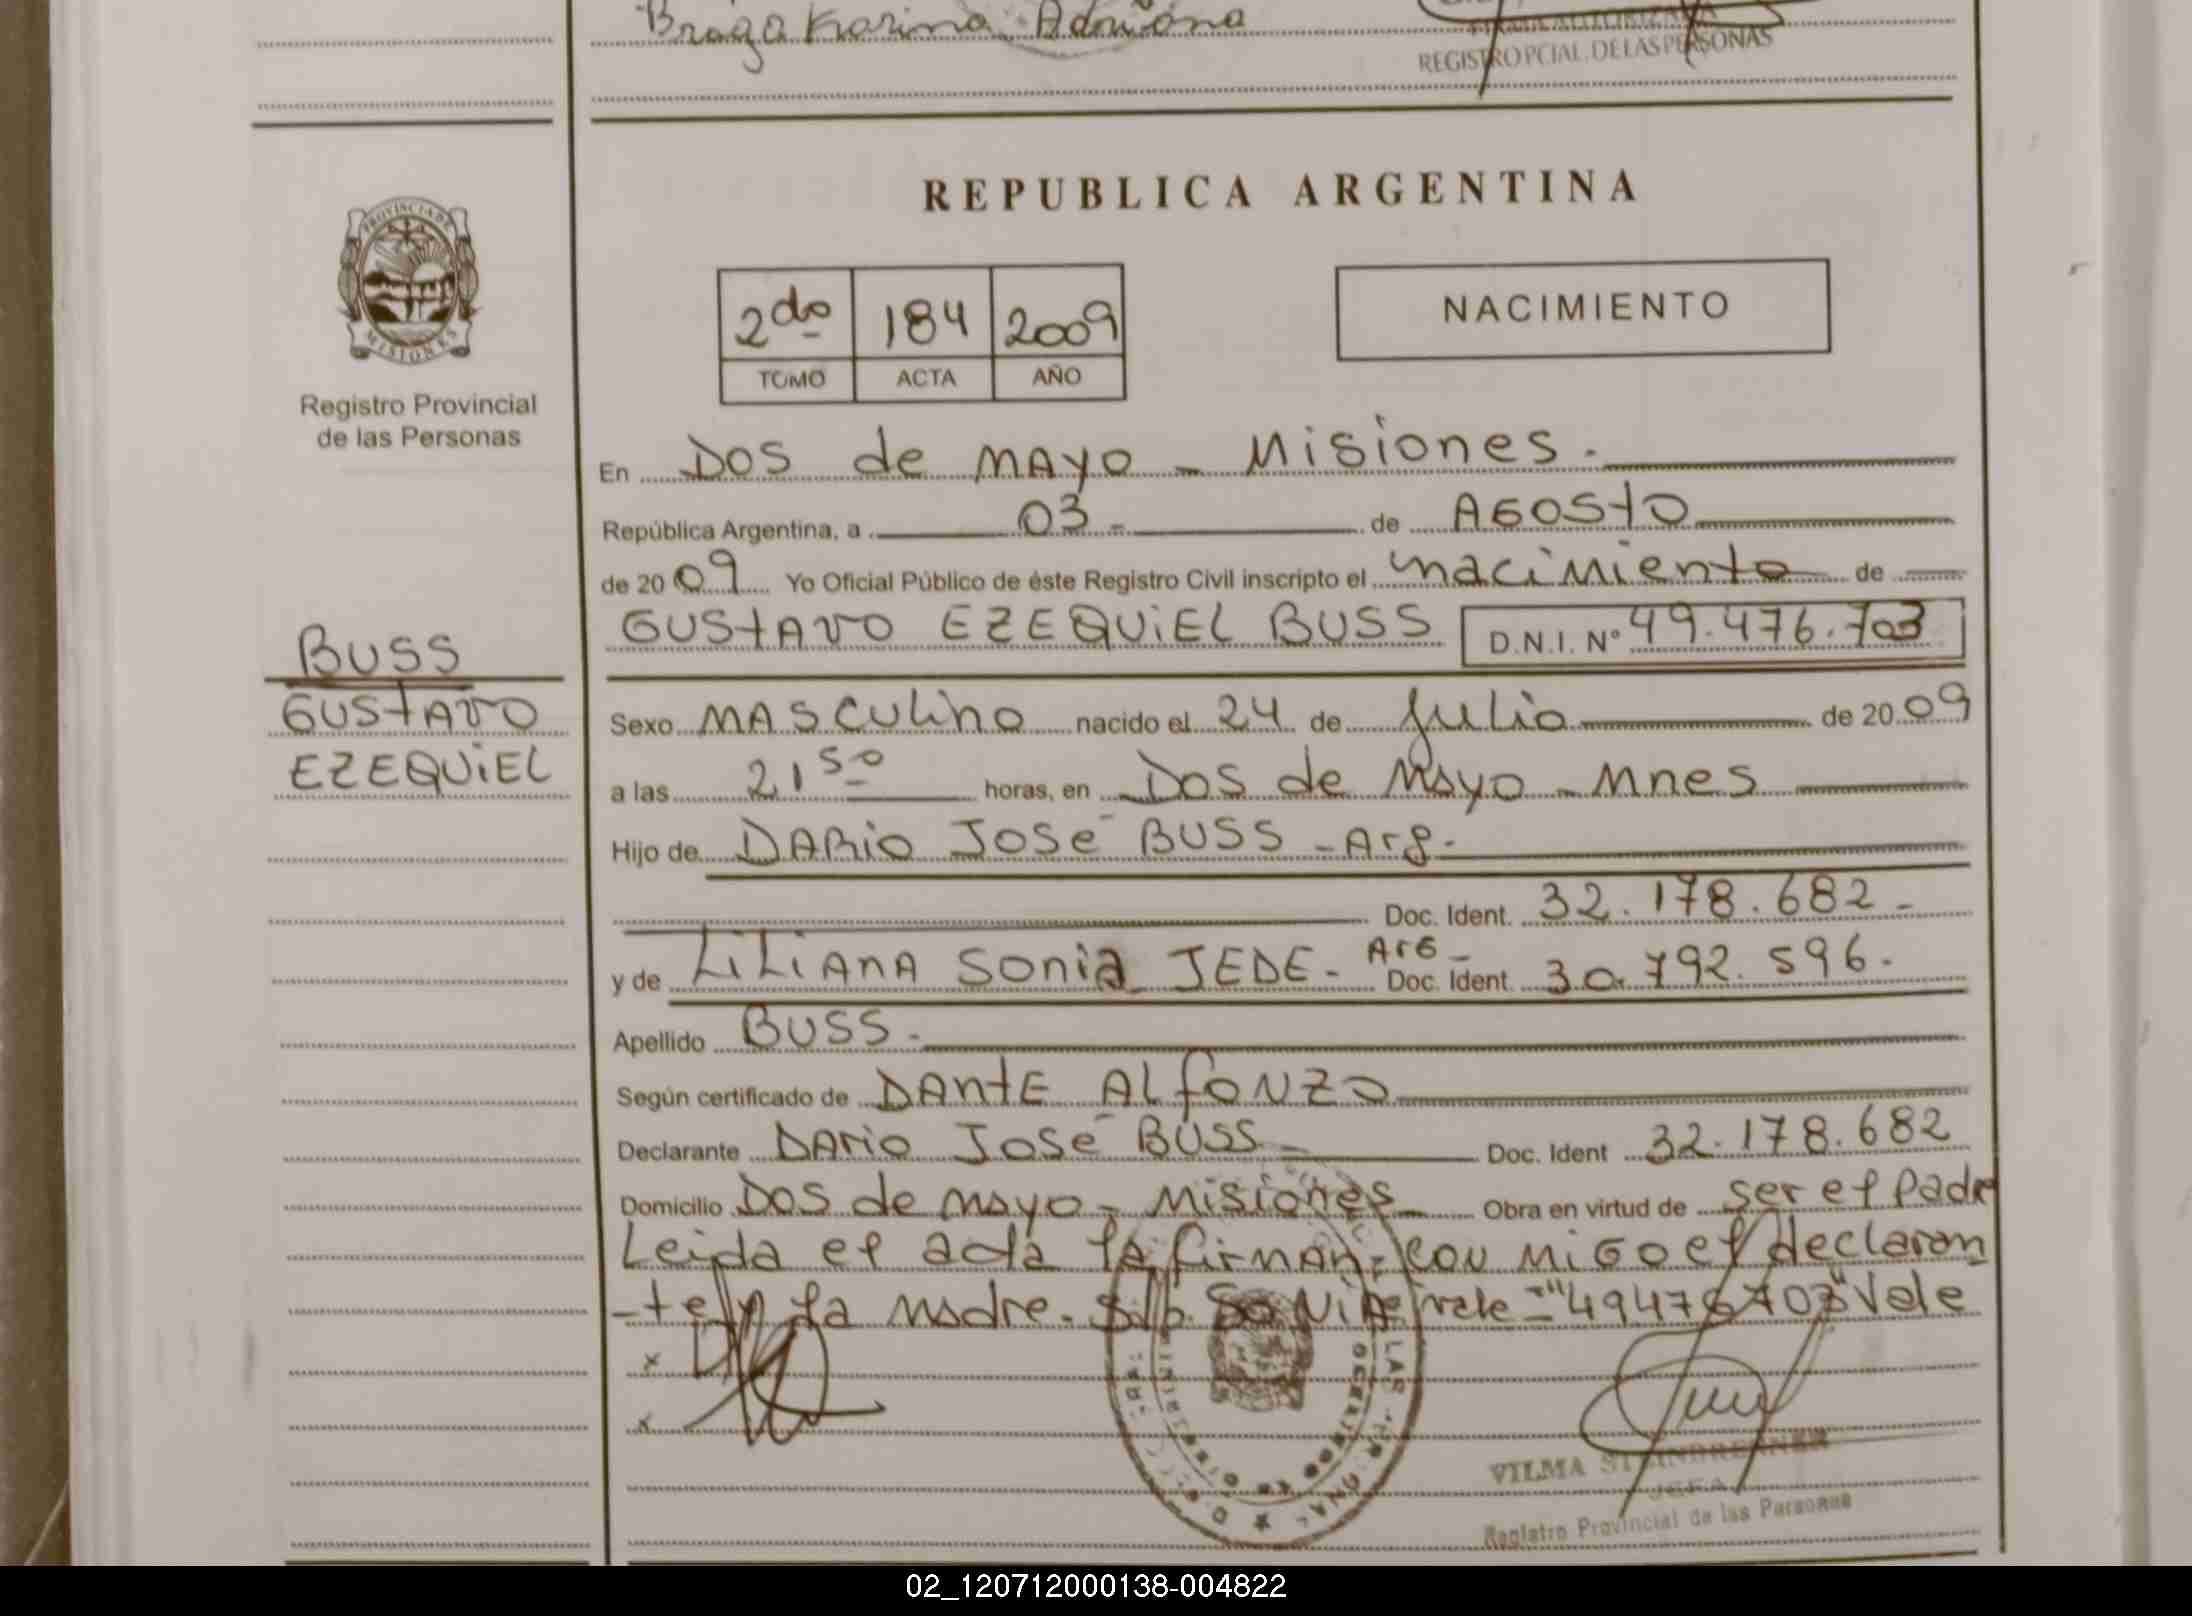 Braga Karina Adriana
FIRMA AUTORIZADA
REGISTRO PCIAL. DE LAS PERSONAS
PROVINCIA DE
MISIONES
Registro Provincial
de las Personas
REPUBLICA ARGENTINA
2do 184 2009
TOMO ACTA AÑO
NACIMIENTO
En DOS de MAYO - Misiones.
República Argentina, a 03 - de AGOSTO
de 2009 Yo Oficial Público de éste Registro Civil inscripto el nacimiento de
GUSTAVO EZEQUIEL BUSS D.N.I. Nº 49.476.703
BUSS
GUSTAVO
EZEQUIEL
Sexo MASCULINO nacido el 24 de Julio de 2009
a las 21 50 horas, en Dos de Mayo - Mnes
Hijo de DARIO JOSÉ BUSS - Arg.
Doc. Ident. 32.178.682 -
y de LILIANA SONIA JEDE - ARG - Doc. Ident. 30.792.596.
Apellido BUSS -
Según certificado de DANTE ALFONZO
Declarante DARIO JOSÉ BUSS Doc. Ident 32.178.682
Domicilio DOS de Mayo - Misiones Obra en virtud de ser el Padre
Leida el acta la firman con migo el declaran
-te y la madre. S/b. SONIA vale - "49476703" Vale
x
x
VILMA STEINDRENNER
JEFA
Registro Provincial de las Personas
02_120712000138-004822